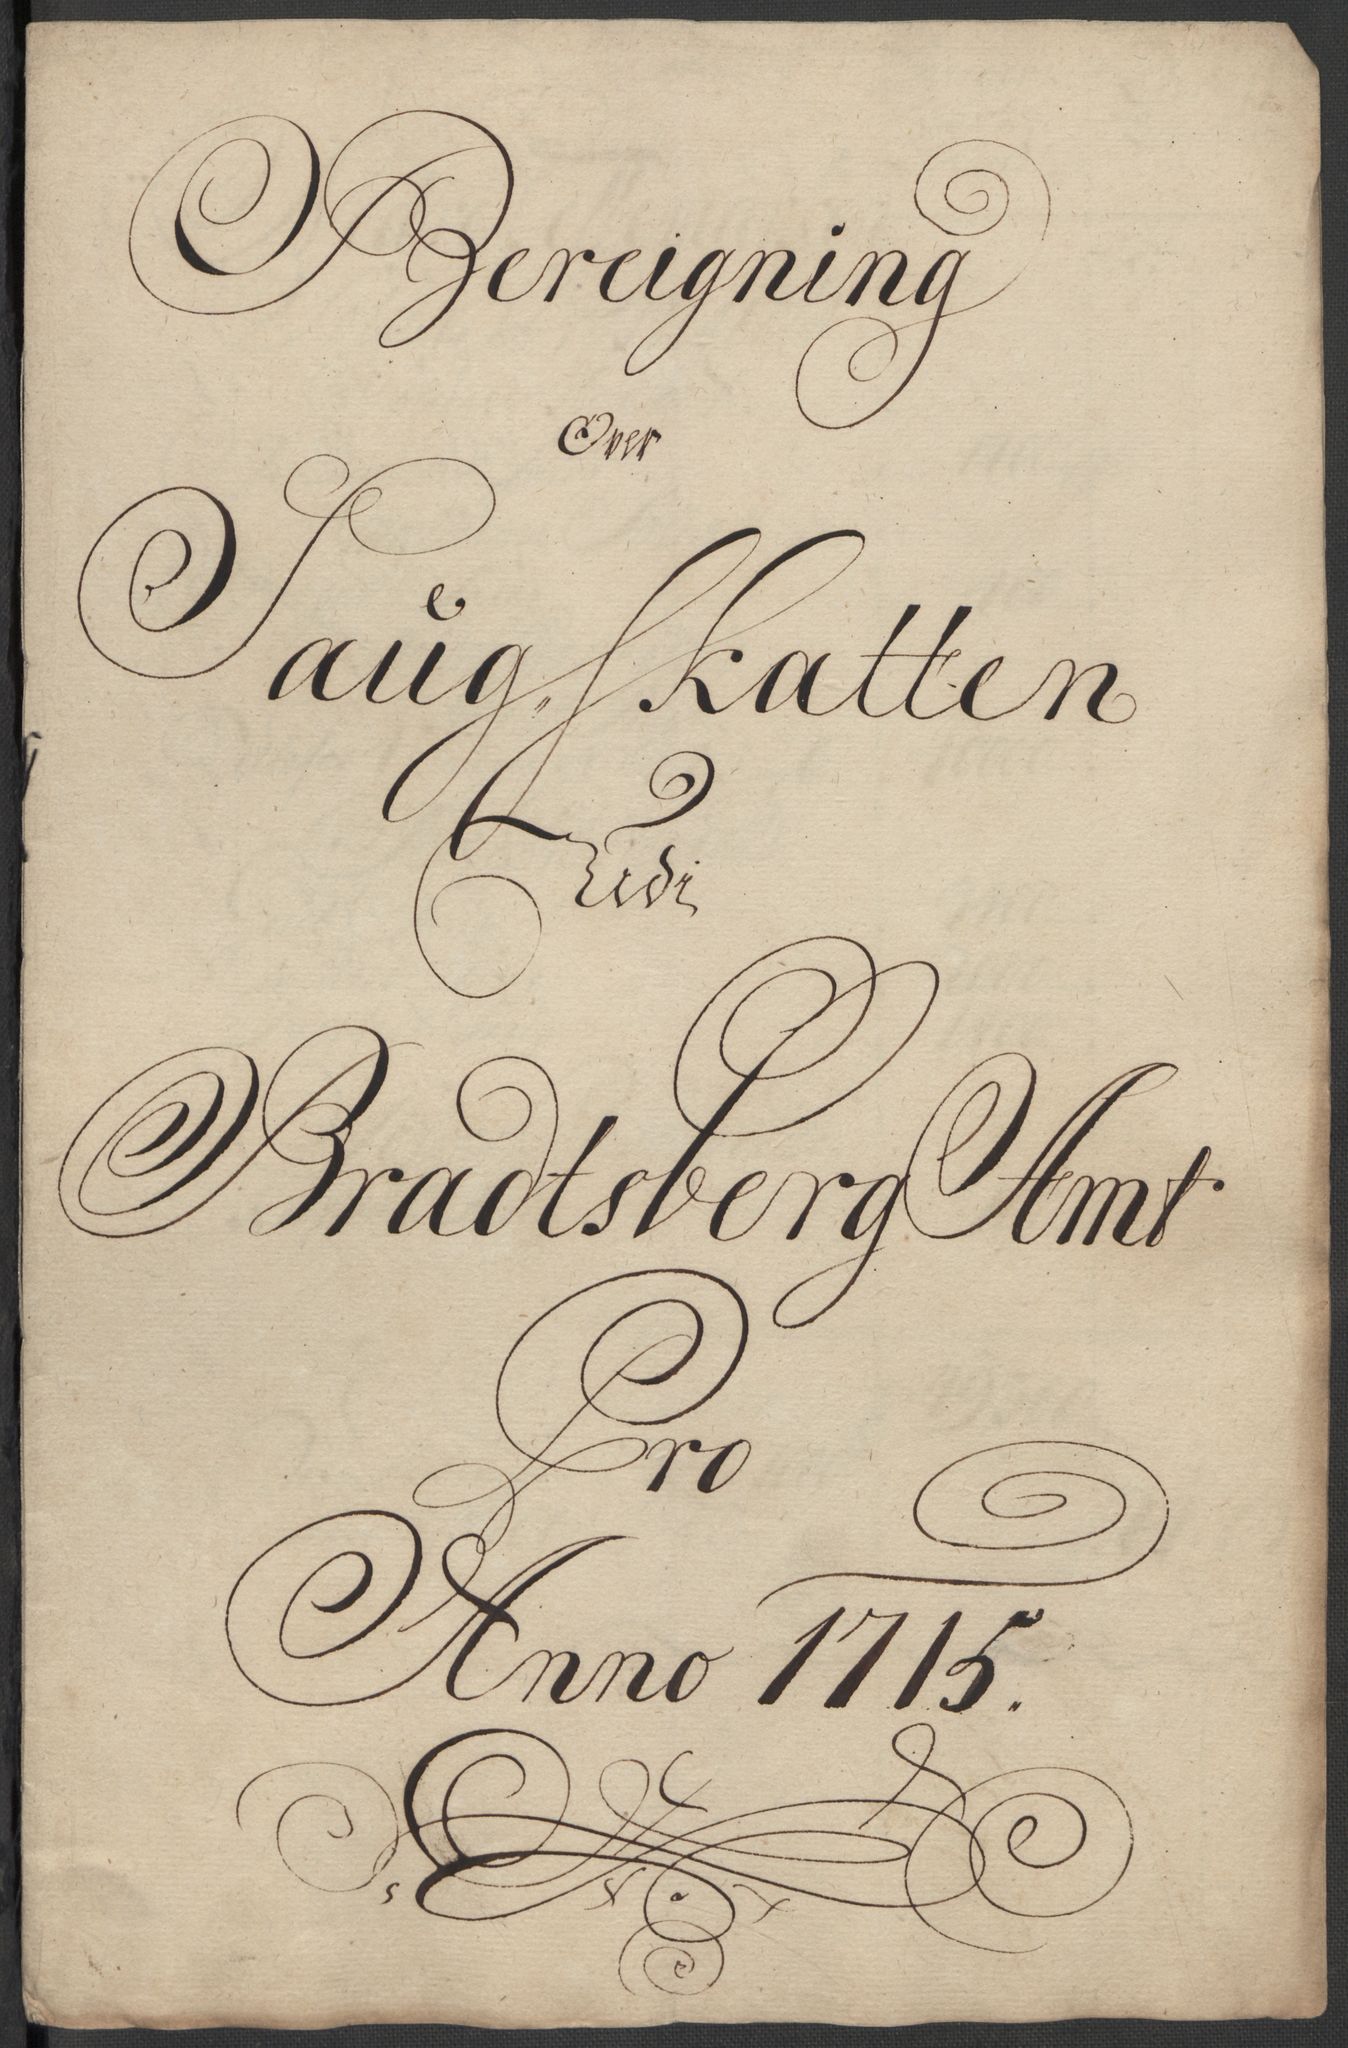 Bereigning
Over
Saug Skatten
Udi
Bradtsberg Amt
Pro
Anno 1715.